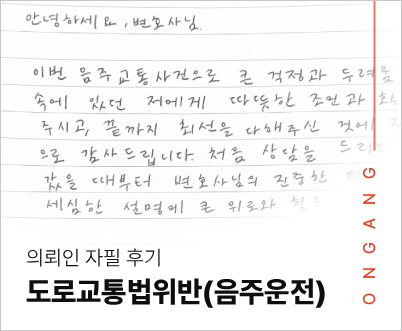 안녕하세요, 변호사님.
이번 음주교통사건으로 큰 걱정과 두려움
속에 있던 저에게 따뜻한 조언과
주시고, 끝까지 최선을 다해주신 것에
으로 감사드립니다. 처음 상담을 드리러
갔을 때부터 변호사님의 진중한
세심한 설명에 큰 위로와
의뢰인 자필 후기
도로교통법위반(음주운전)
ONGANG